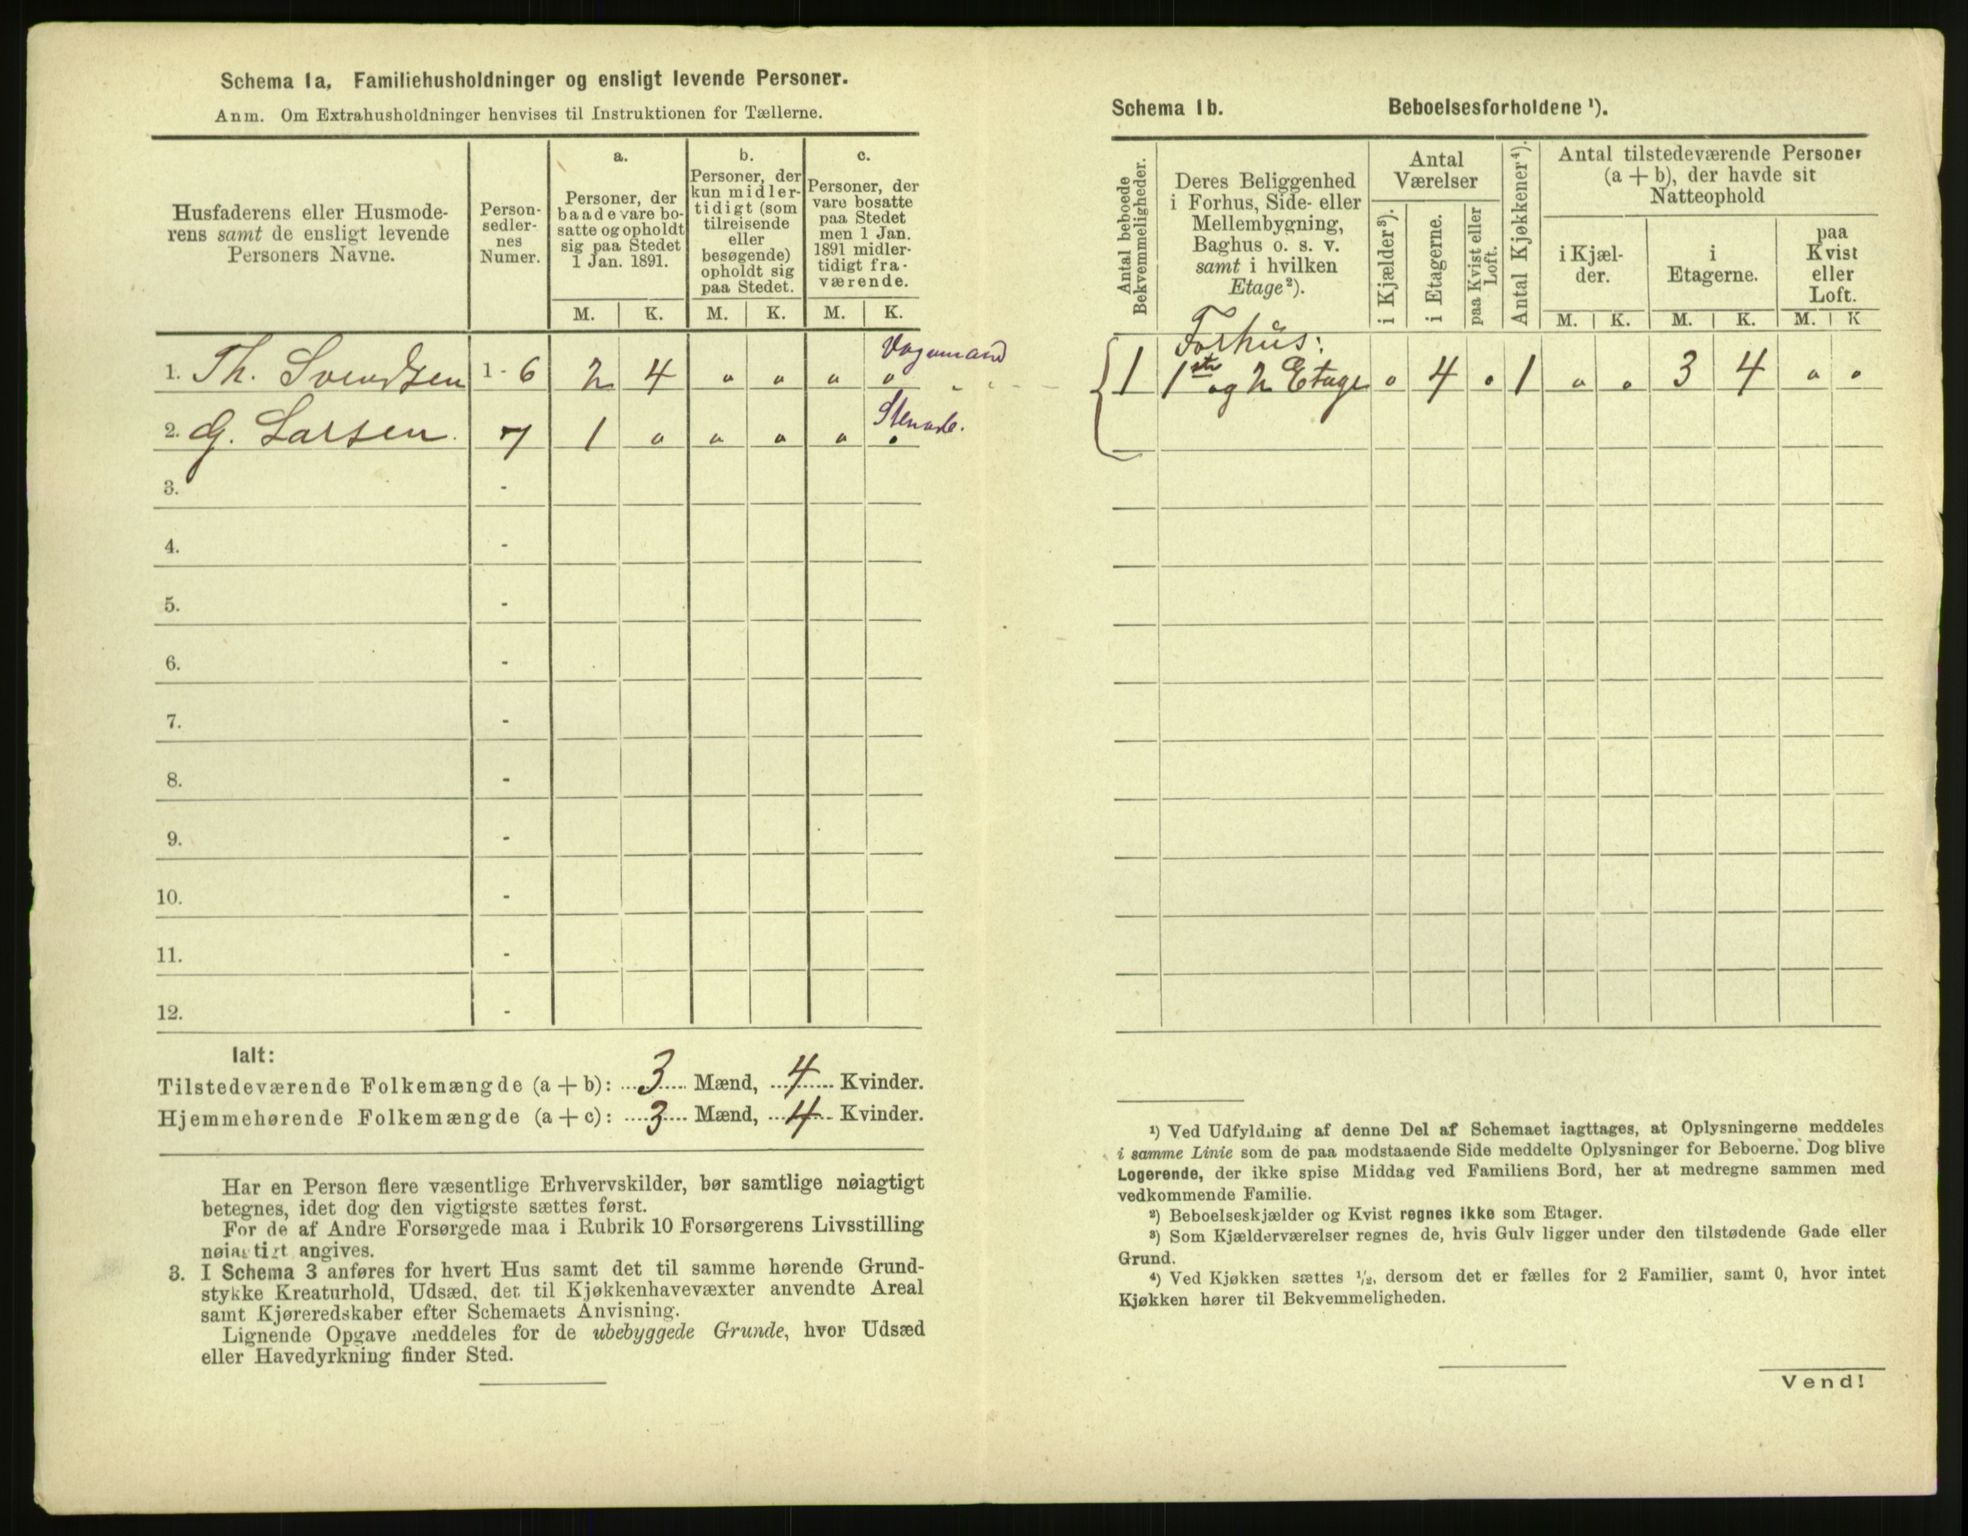 Schema 1a. Familiehusholdninger og ensligt levende Personer.
Anm. Om Extrahusholdninger henvises til Instruktionen for Tællerne.
Husfaderens eller Husmode-
rens samt de ensligt levende
Personers Navne.
Person-
sedler-
nes
Numer.
a.
Personer, der
baade vare bo-
satte og opholdt
sig paa Stedet
1 Jan. 1891.
b.
Personer, der
kun midler-
tidigt (som
tilreisende
eller
besøgende)
opholdt sig
paa Stedet.
c.
Personer, der
vare bosatte
paa Stedet
men 1 Jan.
1891 midler-
tidigt fra-
værende.
M. K. M. K. M. K.
1. Th. Svendsen 1 - 6 2 4 " " " "
2. G. Larsen. 7 1 " " " " "
3. -
4. -
5. -
6. -
7. -
8. -
9. -
10. -
11. -
12. -
Ialt:
Tilstedeværende Folkemængde (a + b): 3 Mænd, 4 Kvinder.
Hjemmehørende Folkemængde (a + c): 3 Mænd, 4 Kvinder.
Har en Person flere væsentlige Erhvervskilder, bør samtlige nøiagtigt
betegnes, idet dog den vigtigste sættes først.
For de af Andre Forsørgede maa i Rubrik 10 Forsørgerens Livsstilling
nøiagtigt angives.
3. I Schema 3 anføres for hvert Hus samt det til samme hørende Grund-
stykke Kreaturhold, Udsæd, det til Kjøkkenhavevæxter anvendte Areal
samt Kjøreredskaber efter Schemaets Anvisning.
Lignende Opgave meddeles for de ubebyggede Grunde, hvor Udsæd
eller Havedyrkning finder Sted.
Schema 1b. Beboelsesforholdene ¹).
Antal beboede
Bekvemmeligheder.
Deres Beliggenhed
i Forhus, Side- eller
Mellembygning,
Baghus o. s. v.
samt i hvilken
Etage²).
Antal
Værelser
i Kjælder³).
i Etagerne.
paa Kvist eller
Loft.
Antal Kjøkkener⁴).
Antal tilstedeværende Personer
(a + b), der havde sit
Natteophold
i Kjæl-
der.
i
Etagerne.
paa
Kvist
eller
Loft.
M. K. M. K. M. K
Forhus:
1 1ste og 2 Etage " 4 " 1 " " 3 4 " "
¹) Ved Udfyldning af denne Del af Schemaet iagttages, at Oplysningerne meddeles
i samme Linie som de paa modstaaende Side meddelte Oplysninger for Beboerne. Dog blive
Logerende, der ikke spise Middag ved Familiens Bord, her at medregne sammen med
vedkommende Familie.
²) Beboelseskjælder og Kvist regnes ikke som Etager.
³) Som Kjælderværelser regnes de, hvis Gulv ligger under den tilstødende Gade eller
Grund.
⁴) Ved Kjøkken sættes ½, dersom det er fælles for 2 Familier, samt 0, hvor intet
Kjøkken hører til Bekvemmeligheden.
Vend!